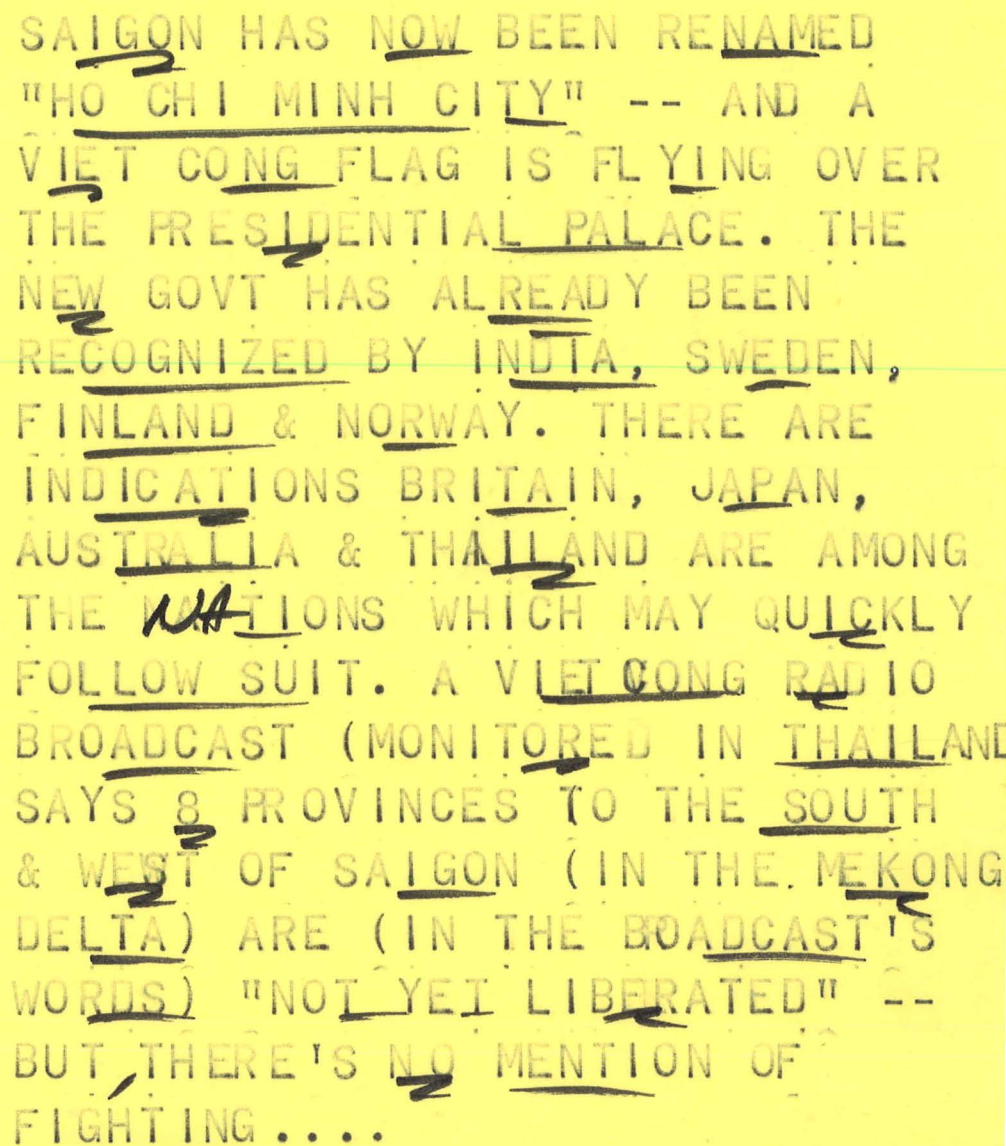 SAIGON HAS NOW BEEN RENAMED
"HO CHI MINH CITY" -- AND A
VIET CONG FLAG IS FLYING OVER
THE PRESIDENTIAL PALACE. THE
NEW GOVT HAS ALREADY BEEN
RECOGNIZED BY INDIA, SWEDEN,
FINLAND & NORWAY. THERE ARE
INDICATIONS BRITAIN, JAPAN,
AUSTRALIA & THAILAND ARE AMONG
THE NATIONS WHICH MAY QUICKLY
FOLLOW SUIT. A VIET CONG RADIO
BROADCAST (MONITORED IN THAILAND
SAYS 8 PROVINCES TO THE SOUTH
& WEST OF SAIGON (IN THE MEKONG
DELTA) ARE (IN THE BROADCAST'S
WORDS) "NOT YET LIBERATED" --
BUT, THERE'S NO MENTION OF
FIGHTING....